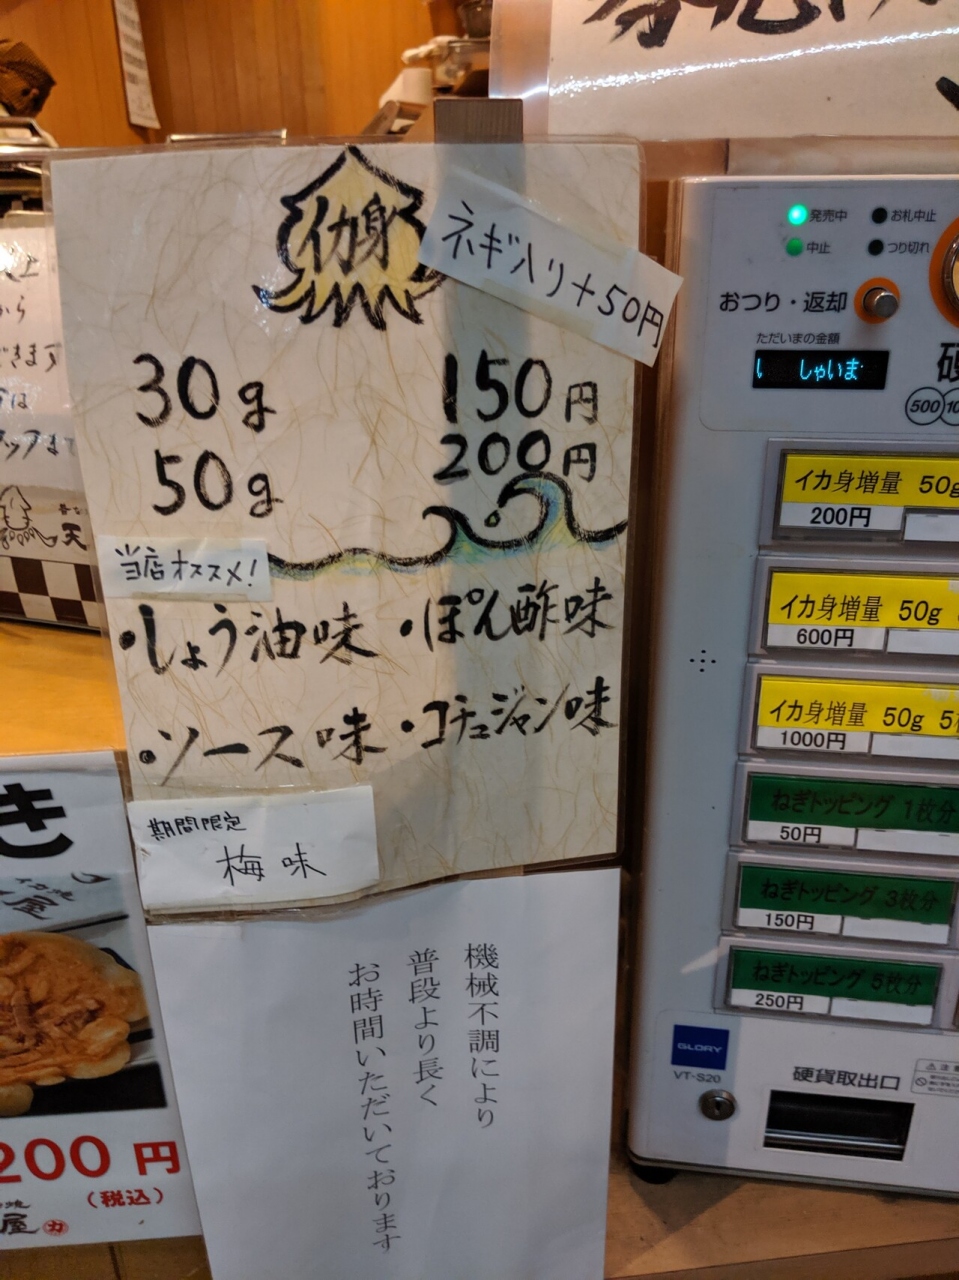 イカ身
ネギ入り+50円
30g 150円
50g 200円
当店オススメ!
・しょう油味 ・ぽん酢味
・ソース味 ・コチュジャン味
期間限定
梅味
機械不調により
普段より長く
お時間いただいております
き
200円
(税込)
屋
から
天
発売中 お札中止
中止 つり切れ
おつり・返却
ただいまの金額
しゃいま
500
イカ身増量 50g
200円
イカ身増量 50g
600円
イカ身増量 50g 5
1000円
ねぎトッピング 1枚分
50円
ねぎトッピング 3枚分
150円
ねぎトッピング 5枚分
250円
GLORY
VT-S20
硬貨取出口
注意